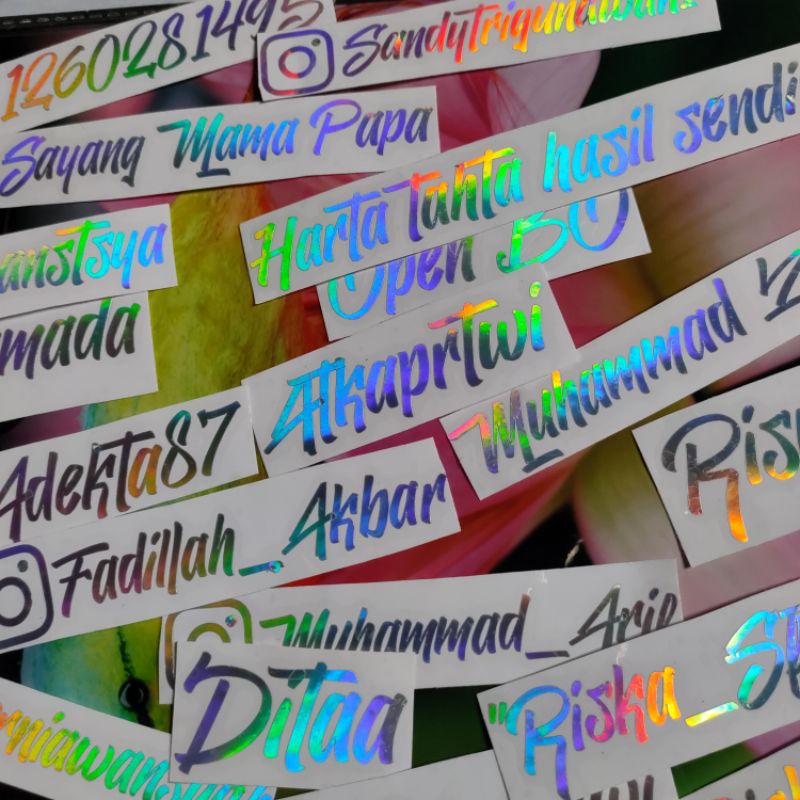 1260281495
Sandytrigunawan
Sayang Mama Papa
Harta tahta hasil sendi
anstsya
Open BO
mada
Atkaprtwi
Muhammad
Adekta87
Ris
Fadillah_Akbar
Muhammad_Arie
Ditaa
"Riska_S
rniawansyah